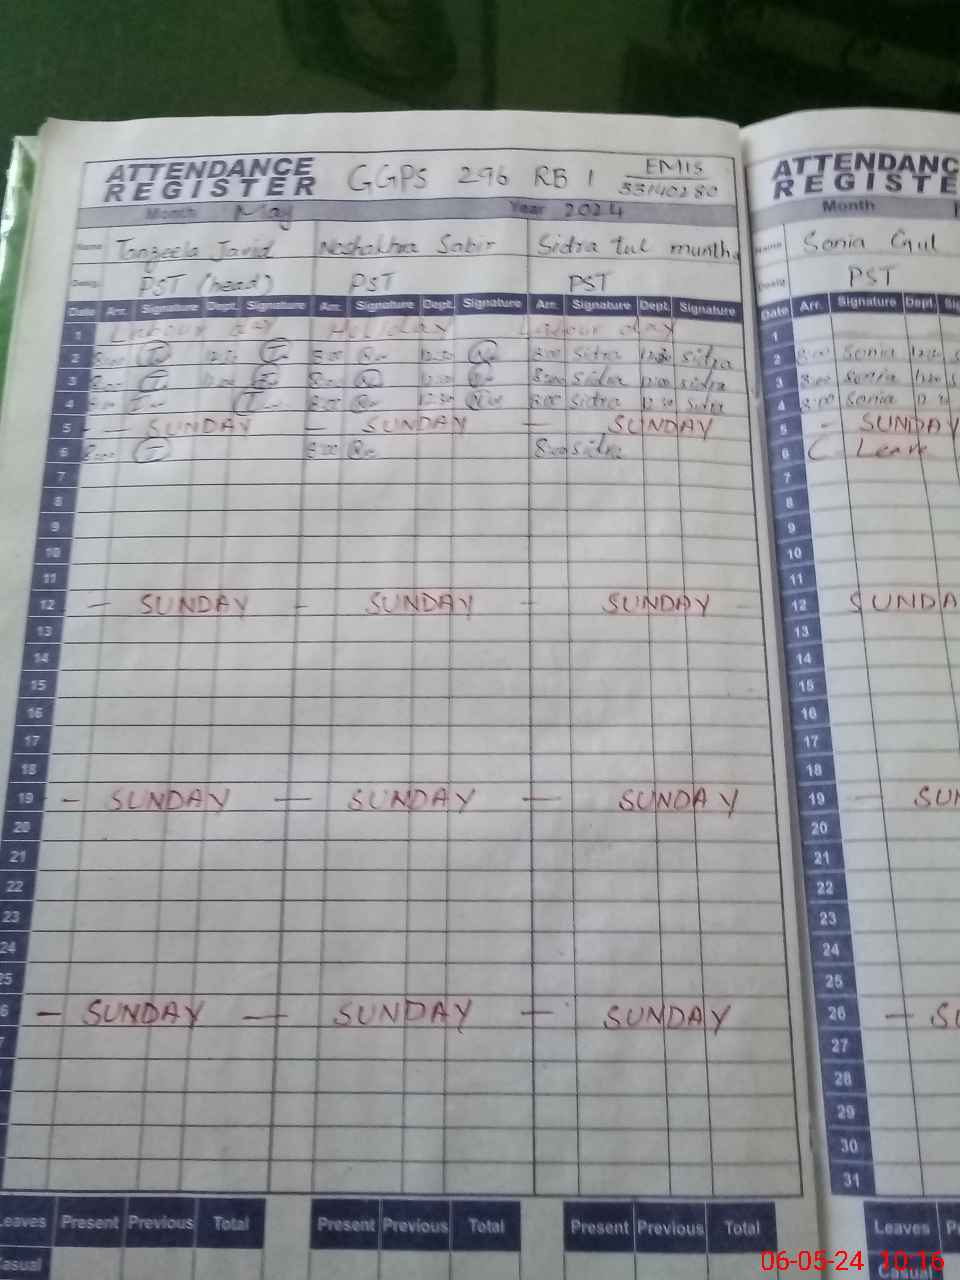 ATTENDANCE REGISTER GGPS 296 RB 1 EMIS 33140280
Month May Year 2024
Name Tanzeela Javid Nashakhra Sabir Sidra tul muntha
Desig. PST (head) PST PST
Date Arr. Signature Dept. Signature Arr. Signature Dept. Signature Arr. Signature Dept. Signature
1 Labour day Holiday Labour day
2 8:00 12:30 8:00 12:30 8:00 Sidra 12:30 Sidra
3 8:00 12:00 8:00 12:00 8:00 Sidra 12:00 Sidra
4 8:00 8:00 12:30 8:00 Sidra 12:30 Sidra
5 - - SUNDAY - SUNDAY - SUNDAY
6 8:00 8:00 8:00 Sidra
7
8
9
10
11
12 - SUNDAY - SUNDAY - SUNDAY -
13
14
15
16
17
18
19 - SUNDAY - SUNDAY - SUNDAY
20
21
22
23
24
25
6 - SUNDAY - SUNDAY - SUNDAY
7
Leaves Present Previous Total Present Previous Total Present Previous Total
Casual
ATTENDANC
REGISTE
Month
Name Sonia Gul
Desig. PST
Date Arr. Signature Dept. Si
1
2 8:00 Sonia
3 8:00 Sonia
4 8:00 Sonia
5 - SUNDAY
6 C Leave
7
8
9
10
11
12 SUNDA
13
14
15
16
17
18
19 SUN
20
21
22
23
24
25
26 - SU
27
28
29
30
31
Leaves Pr
Casual
06-05-24 10:16